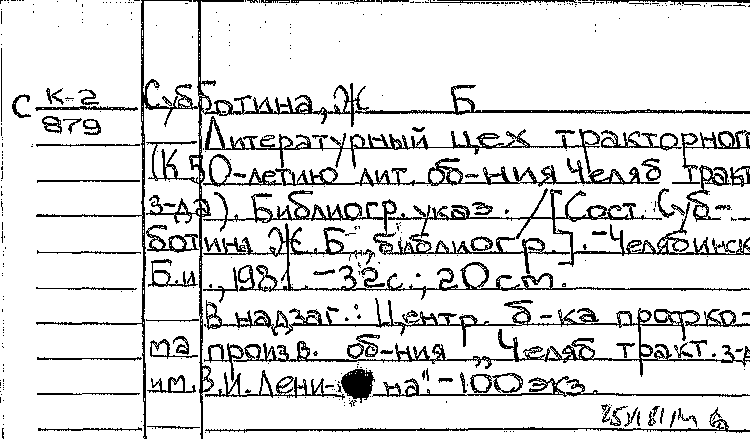 С К-2 Субботина, Ж Б
879
Литературный цех тракторног
(К 50-летию лит. об-ния Челяб тракт
з-да). Библиогр. указ. / [Сост. Суб-
ботина Ж. Б., библиогр.]. - Челябинск
Б.и., 1981. - 32 с.; 20 см.
В надзаг.: Центр. б-ка профко-
ма произв. об-ния „Челяб тракт. з-д
им. В.И. Лени- на". - 100 экз.